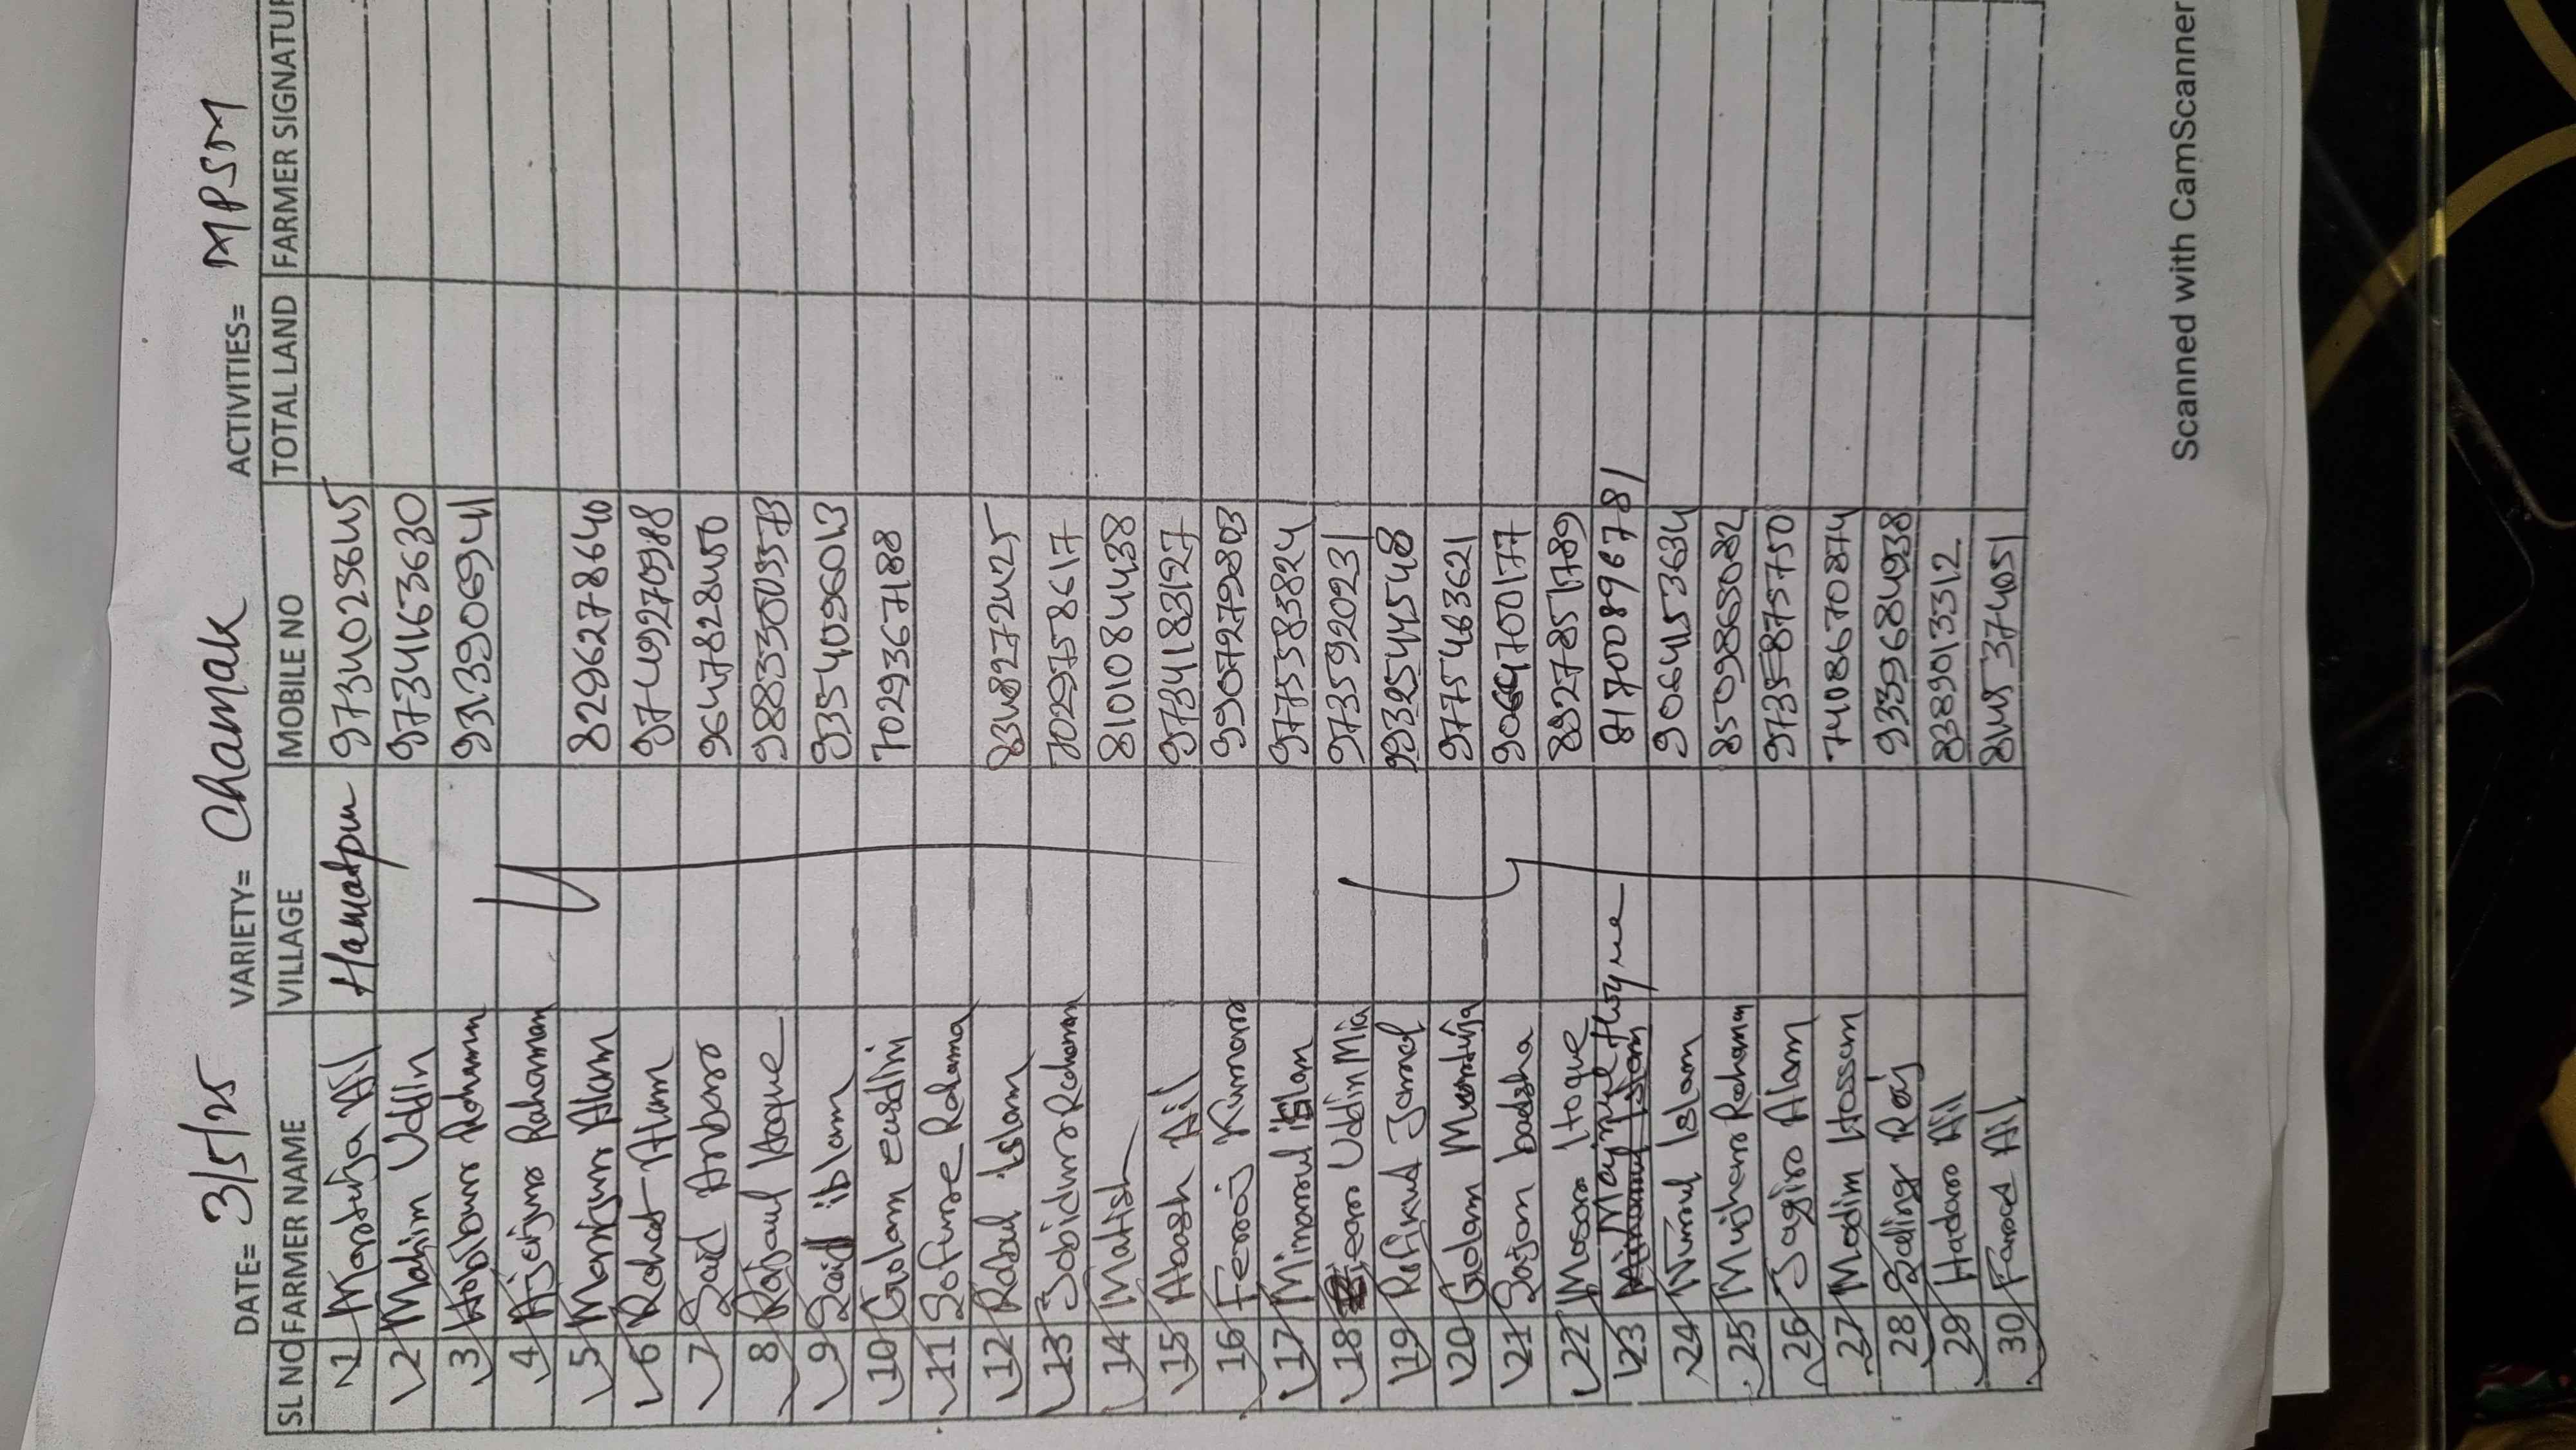 DATE= 3/5/25 VARIETY= Chamak ACTIVITIES= MPSM
SL NO FARMER NAME VILLAGE MOBILE NO TOTAL LAND FARMER SIGNATUR
1 Mortuja Ali Hamatpur 9734023645
2 Mahim Uddin 9734163630
3 Habibur Rohamn
4 Ajijur Rahaman
5 Monijur Alam 8296278640
6 Rohat Alam 9749270988
7 Said Anbaro 9647828450
8 Rajaul Hoque 98833003573
9 Said iblam
10 Golam 7029367188
11 Sofure Rohama
12 Robul Islam 8348272425
13 Sobidur Rohoman 7029758617
14 Matish 8101084438
15 Akash Ali 9734183127
16 Ferroj Kumaro
17 Mimarul islam 9775583824
18 Uddin Mia 9735592023
19 Rofikul Jamal
20 Golam Murtuja 9775463621
21 Sojon badsha 9064700177
22 Masoro Hoque 8927851789
23 Mayjnul Hoque 81700896781
24 Nurul Islam 9064153634
25 Mujharo Rohaman 8509865082
26 Jagiro Alam 9735875750
27 Modim Hossam 7408670874
28 Saling Raj 9339684938
29 Hadaro Ali 8389013312
30 Farod Ali
Scanned with CamScanner